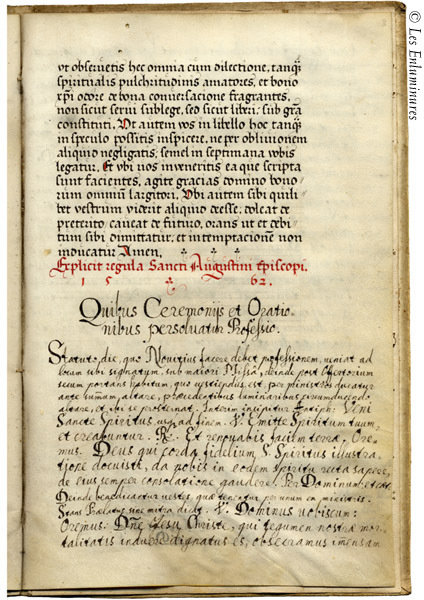 ut observetis hec omnia cum dilectione, tanq̃
spiritualis pulchritudinis amatores, et bono
xp̃i odore de bona conversacione fragrantes,
non sicut servi sub lege, sed sicut liberi: sub gr̃a
constituti. Ut autem vos in libello hoc tanq̃
in speculo possitis inspicere, ne per oblivionem
aliquid negligatis: semel in septimana vobis
legatur. Et ubi vos inveneritis ea que scripta
sunt facientes, agite gracias domino bono
rum omnium largitori. Ubi autem sibi quili
bet vestrum viderit aliquid deesse, doleat de
preterito caveat de futuro, orans ut et debi
tum sibi dimittatur, et in temptacionem non
inducatur Amen.
Explicit regula Sancti Augustini Episcopi.
1 5 62.
Quibus Ceremonijs et Oratio
nibus persolvatur Professio.
Statuto die, quo Novitius facere debet professionem, veniat ad
locum sibi signatum, sub maiori Missa, deinde post offertorium
secum portans habitum, quo vestiendus est, per ministros ducatur
ante sumum altare, praecedentibus luminaribus circumducendo
altare, et ibi se prosternat. Interim incipitur Antiph: Veni
Sancte Spiritus, usq, ad finem. V. Emitte Spiritum tuum,
et creabuntur. Re. Et renovabis faciem terrae, Ore
mus. Deus qui corda fidelium S. Spiritus illustra
tione docuisti, da nobis in eodem Spiritu recta sapere,
de eius semper consolatione gaudere. Per Dominum, etc.
Deinde benedicatur vestes, quae tenentur per unum ex ministris.
Stans Praelatus sine mitra dicit. V. Dominus vobiscum:
Oremus: Dñe Jesu Christe, qui tegumen nostrae mor
talitatis induere dignatus es, obsecramus imensam
© Les Enluminures